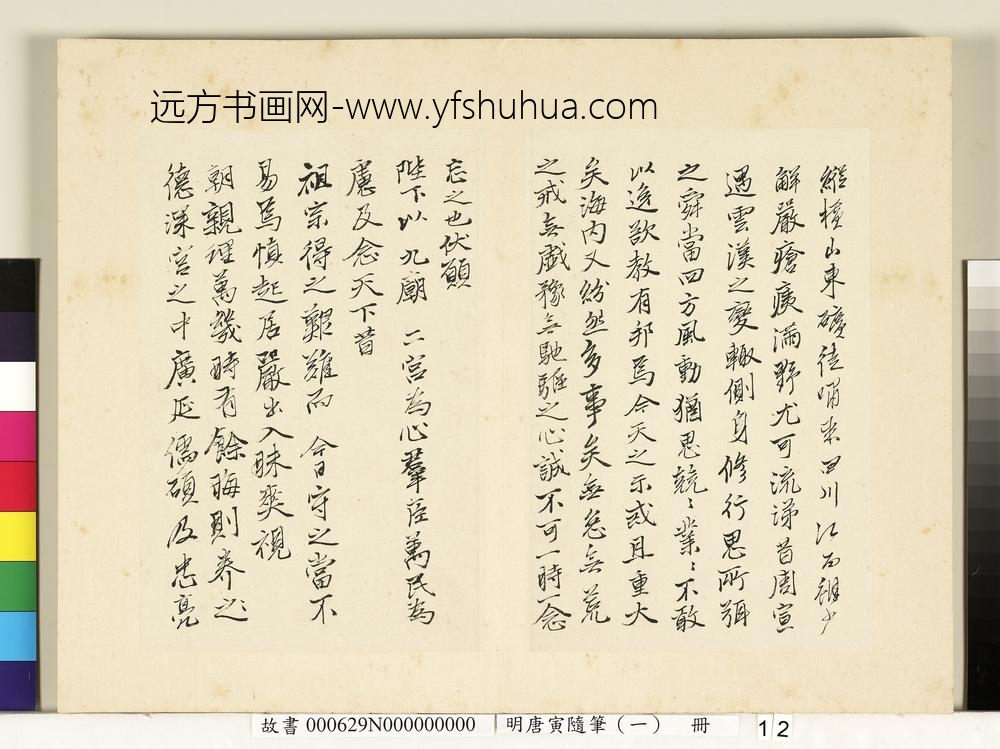 远方书画网-www.yfshuhua.com
縱橫山東礦徒嘯聚四川江西雖少
解嚴瘡痍滿野尤可流涕昔周宣
遇雲漢之變輙側身修行思所弭
之舜當四方風動猶思兢〻業〻不敢
以逸欲教有邦焉今天之示戒且重大
矣海内又紛然多事矣無怠無荒
之戒無戯豫無馳驅之心誠不可一時一念
忘之也伏願
陛下以 九廟 二宮為心羣臣萬民為
慮及念天下昔
祖宗得之艱難而 今日守之當不
易焉慎起居嚴出入昧爽視
朝親理萬幾時有餘晦則养之
德深宮之中廣延儒碩及忠亮
故書 000629N000000000 明唐寅隨筆（一） 冊 12